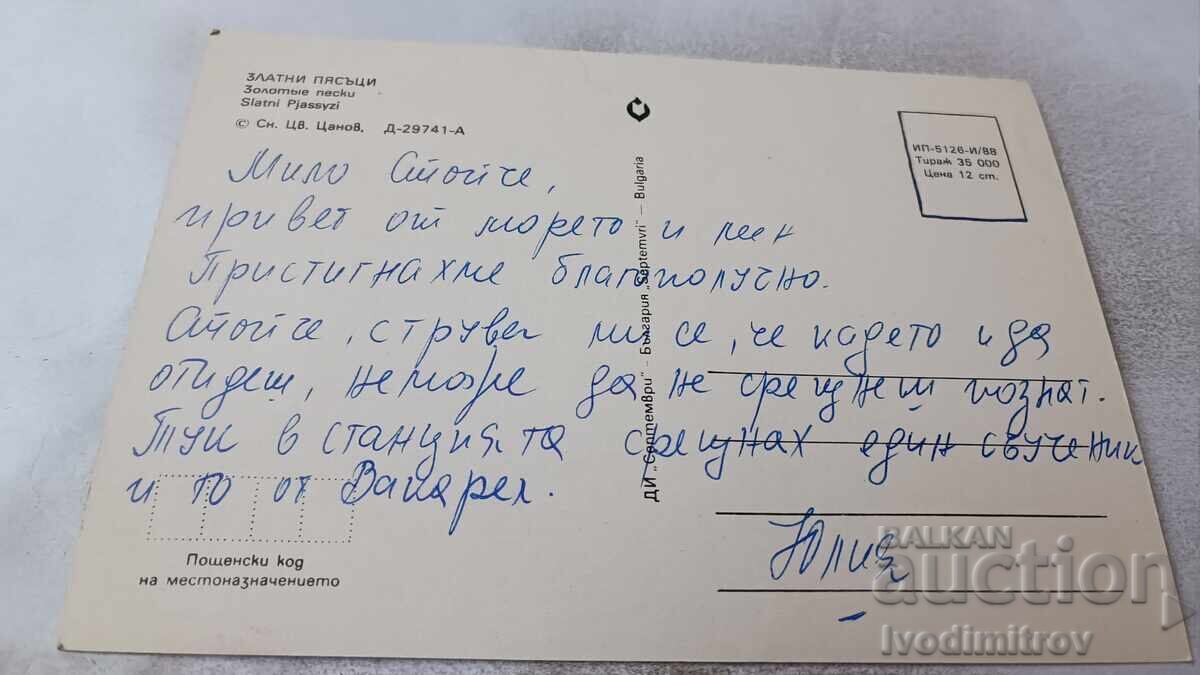 ЗЛАТНИ ПЯСЪЦИ
Золотые пески
Slatni Pjassyzi
© Сн. Цв. Цанов. Д-29741-А
ИП-5126-И/88
Тираж 35 000
Цена 12 ст.
Мило Стойче,
привет от морето и мен
Пристигнахме благополучно.
Стойче, струва ми се, че кадето и да
отидеш, неможе да не срещнеш познат.
Тук в станцията срещнах един съученик
и то от Вакарел.
Юлия
ДИ „Септември" – България „Septemvri" – Bulgaria
Пощенски код
на местоназначението
BALKAN
auction
Ivodimitrov